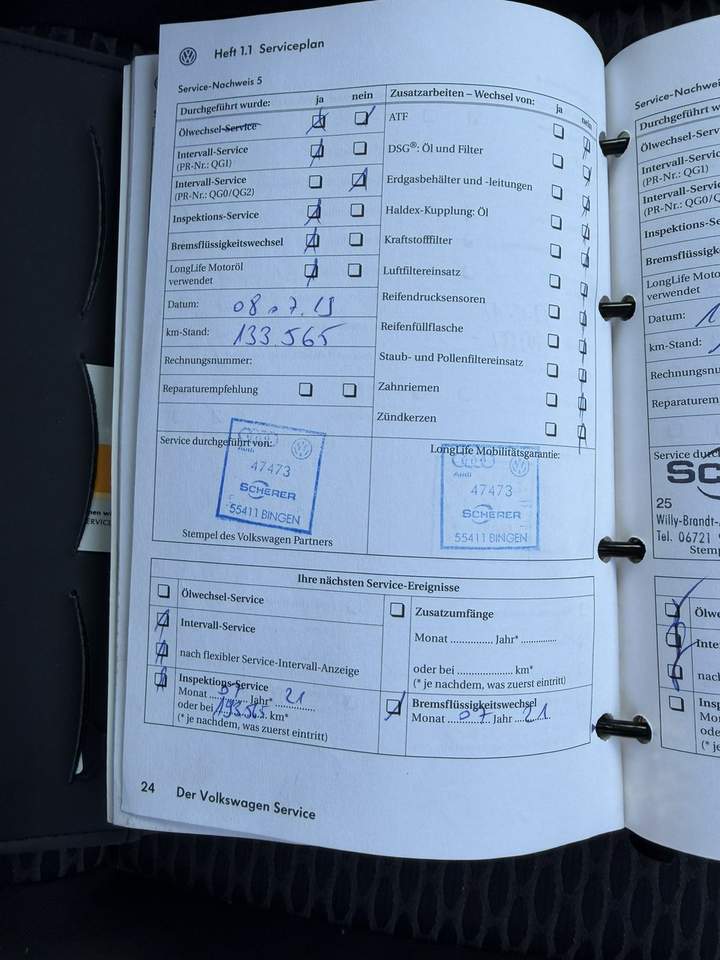 Heft 1.1 Serviceplan
Service-Nachweis 5
Durchgeführt wurde: ja nein
Ölwechsel-Service
Intervall-Service
(PR-Nr.: QG1)
Intervall-Service
(PR-Nr.: QG0/QG2)
Inspektions-Service
Bremsflüssigkeitswechsel
LongLife Motoröl
verwendet
Datum: 08.7.19
km-Stand: 133.565
Rechnungsnummer:
Reparaturempfehlung
Zusatzarbeiten – Wechsel von: ja nein
ATF
DSG®: Öl und Filter
Erdgasbehälter und -leitungen
Haldex-Kupplung: Öl
Kraftstofffilter
Luftfiltereinsatz
Reifendrucksensoren
Reifenfüllflasche
Staub- und Pollenfiltereinsatz
Zahnriemen
Zündkerzen
Service durchgeführt von:
Audi
47473
SCHERER
55411 BINGEN
Stempel des Volkswagen Partners
LongLife Mobilitätsgarantie:
Audi
47473
SCHERER
55411 BINGEN
Ihre nächsten Service-Ereignisse
Ölwechsel-Service
Intervall-Service
nach flexibler Service-Intervall-Anzeige
Inspektions-Service
Monat Jahr* 21
oder bei 193.565 km*
(* je nachdem, was zuerst eintritt)
Zusatzumfänge
Monat .............. Jahr* ..............
oder bei .................... km*
(* je nachdem, was zuerst eintritt)
Bremsflüssigkeitswechsel
Monat 07 Jahr 21
24 Der Volkswagen Service
Service-Nachweis
Durchgeführt w
Ölwechsel-Serv
Intervall-Service
(PR-Nr.: QG1)
Intervall-Service
(PR-Nr.: QG0/Q
Inspektions-Se
Bremsflüssigke
LongLife Moto
verwendet
Datum:
km-Stand:
Rechnungsnu
Reparaturem
Service durc
SC
25
Willy-Brandt-
Tel. 06721
Stemp
Ölwe
Inte
nach
Insp
Mo
ode
(* je